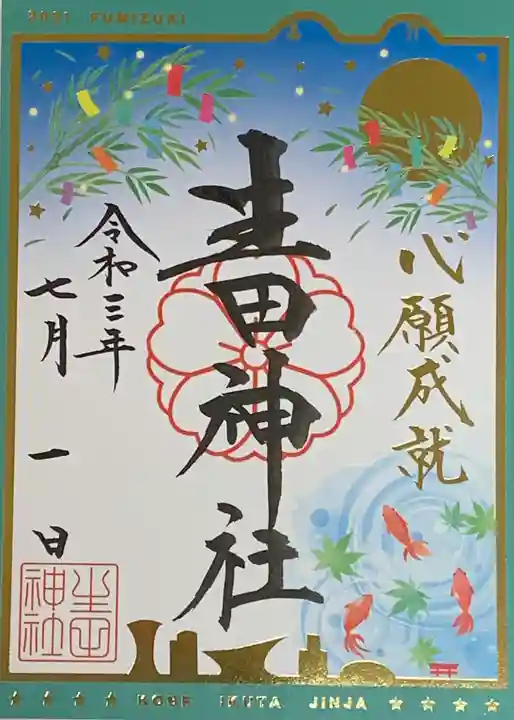 2021 FUMIZUKI
心願成就
生田神社
令和三年
七月一日
生田神社
KOBE IKUTA JINJA